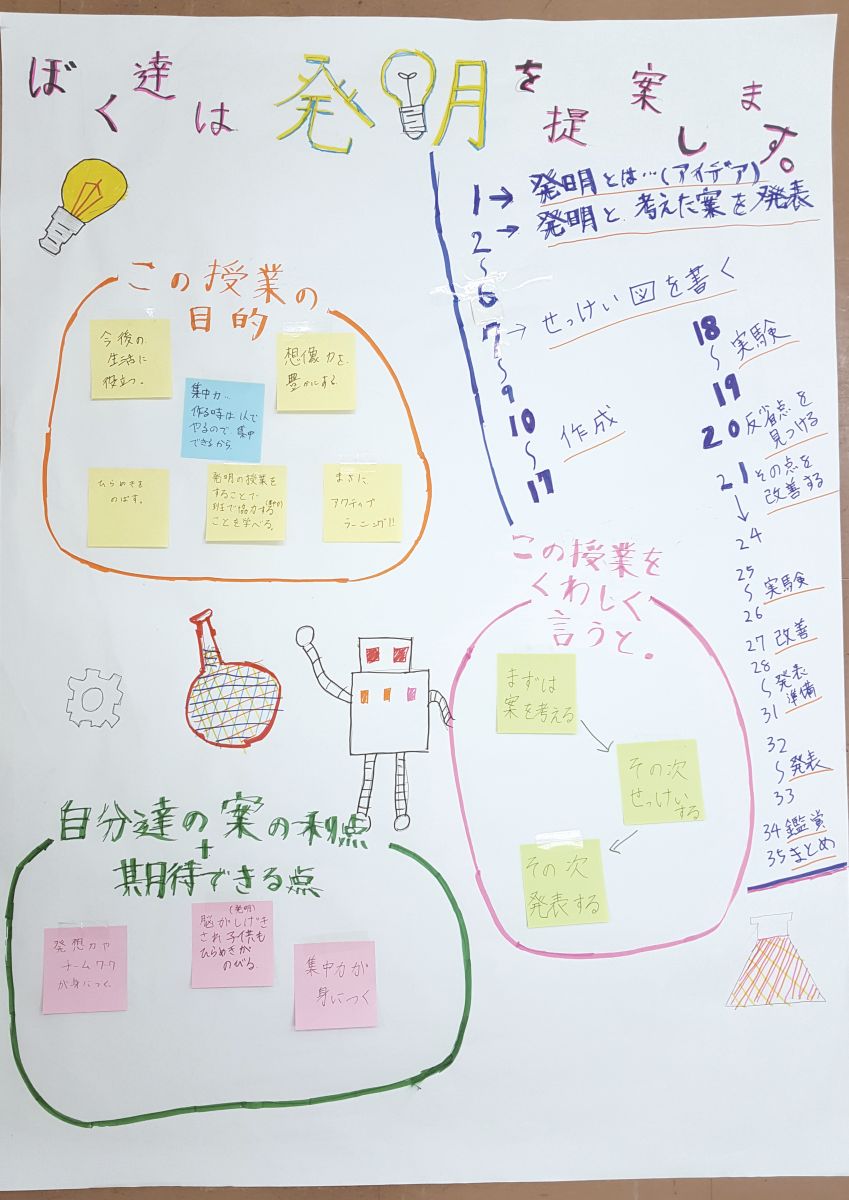 ぼく達は発明を提案します。
1→発明とは…(アイデア)
2→発明と考えた案を発表
〜
6
7→せっけい図を書く
〜
9
10
〜 作成
17
18
〜 実験
19
20 反省点を
見つける
21 その点を
改善する
↓
24
25
〜 実験
26
27 改善
28
〜 発表
準備
31
32
〜 発表
33
34 鑑賞
35 まとめ
この授業の
目的
今後の
生活に
役立つ。
集中力…
作る時は1人で
やるので集中
できるから。
想像力を
豊かにする。
ひらめきを
のばす。
発明の授業を
することで
班で協力する
ことを学べる。
まさに
アクティブ
ラーニング!!
この授業を
くわしく
言うと。
まずは
案を考える
その次
せっけい
する
その次
発表する
自分達の案の利点
+
期待できる点
発想力や
チームワーク
が身につく。
(発明)
脳がしげき
され子供も
ひらめきが
のびる。
集中力が
身につく